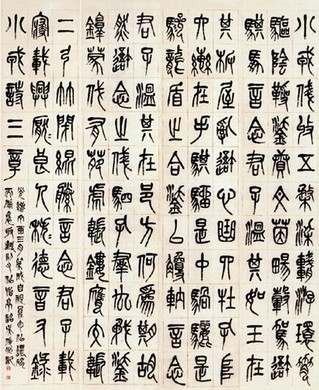 小戎俴收五楘梁輈游環脅
驅陰靷鋈續文茵暢轂駕我
騏馵言念君子溫其如玉在
其板屋亂我心曲四牡孔阜
六轡在手騏騮是中騧驪是
驂龍盾之合鋈以觼軜言念
君子溫其在邑方何為期胡
然我念之俴駟孔群厹矛鋈
錞蒙伐有苑虎韔鏤膺交韔
二弓竹閉緄縢言念君子載
寢載興厭厭良人秩秩德音
小戎詩三章